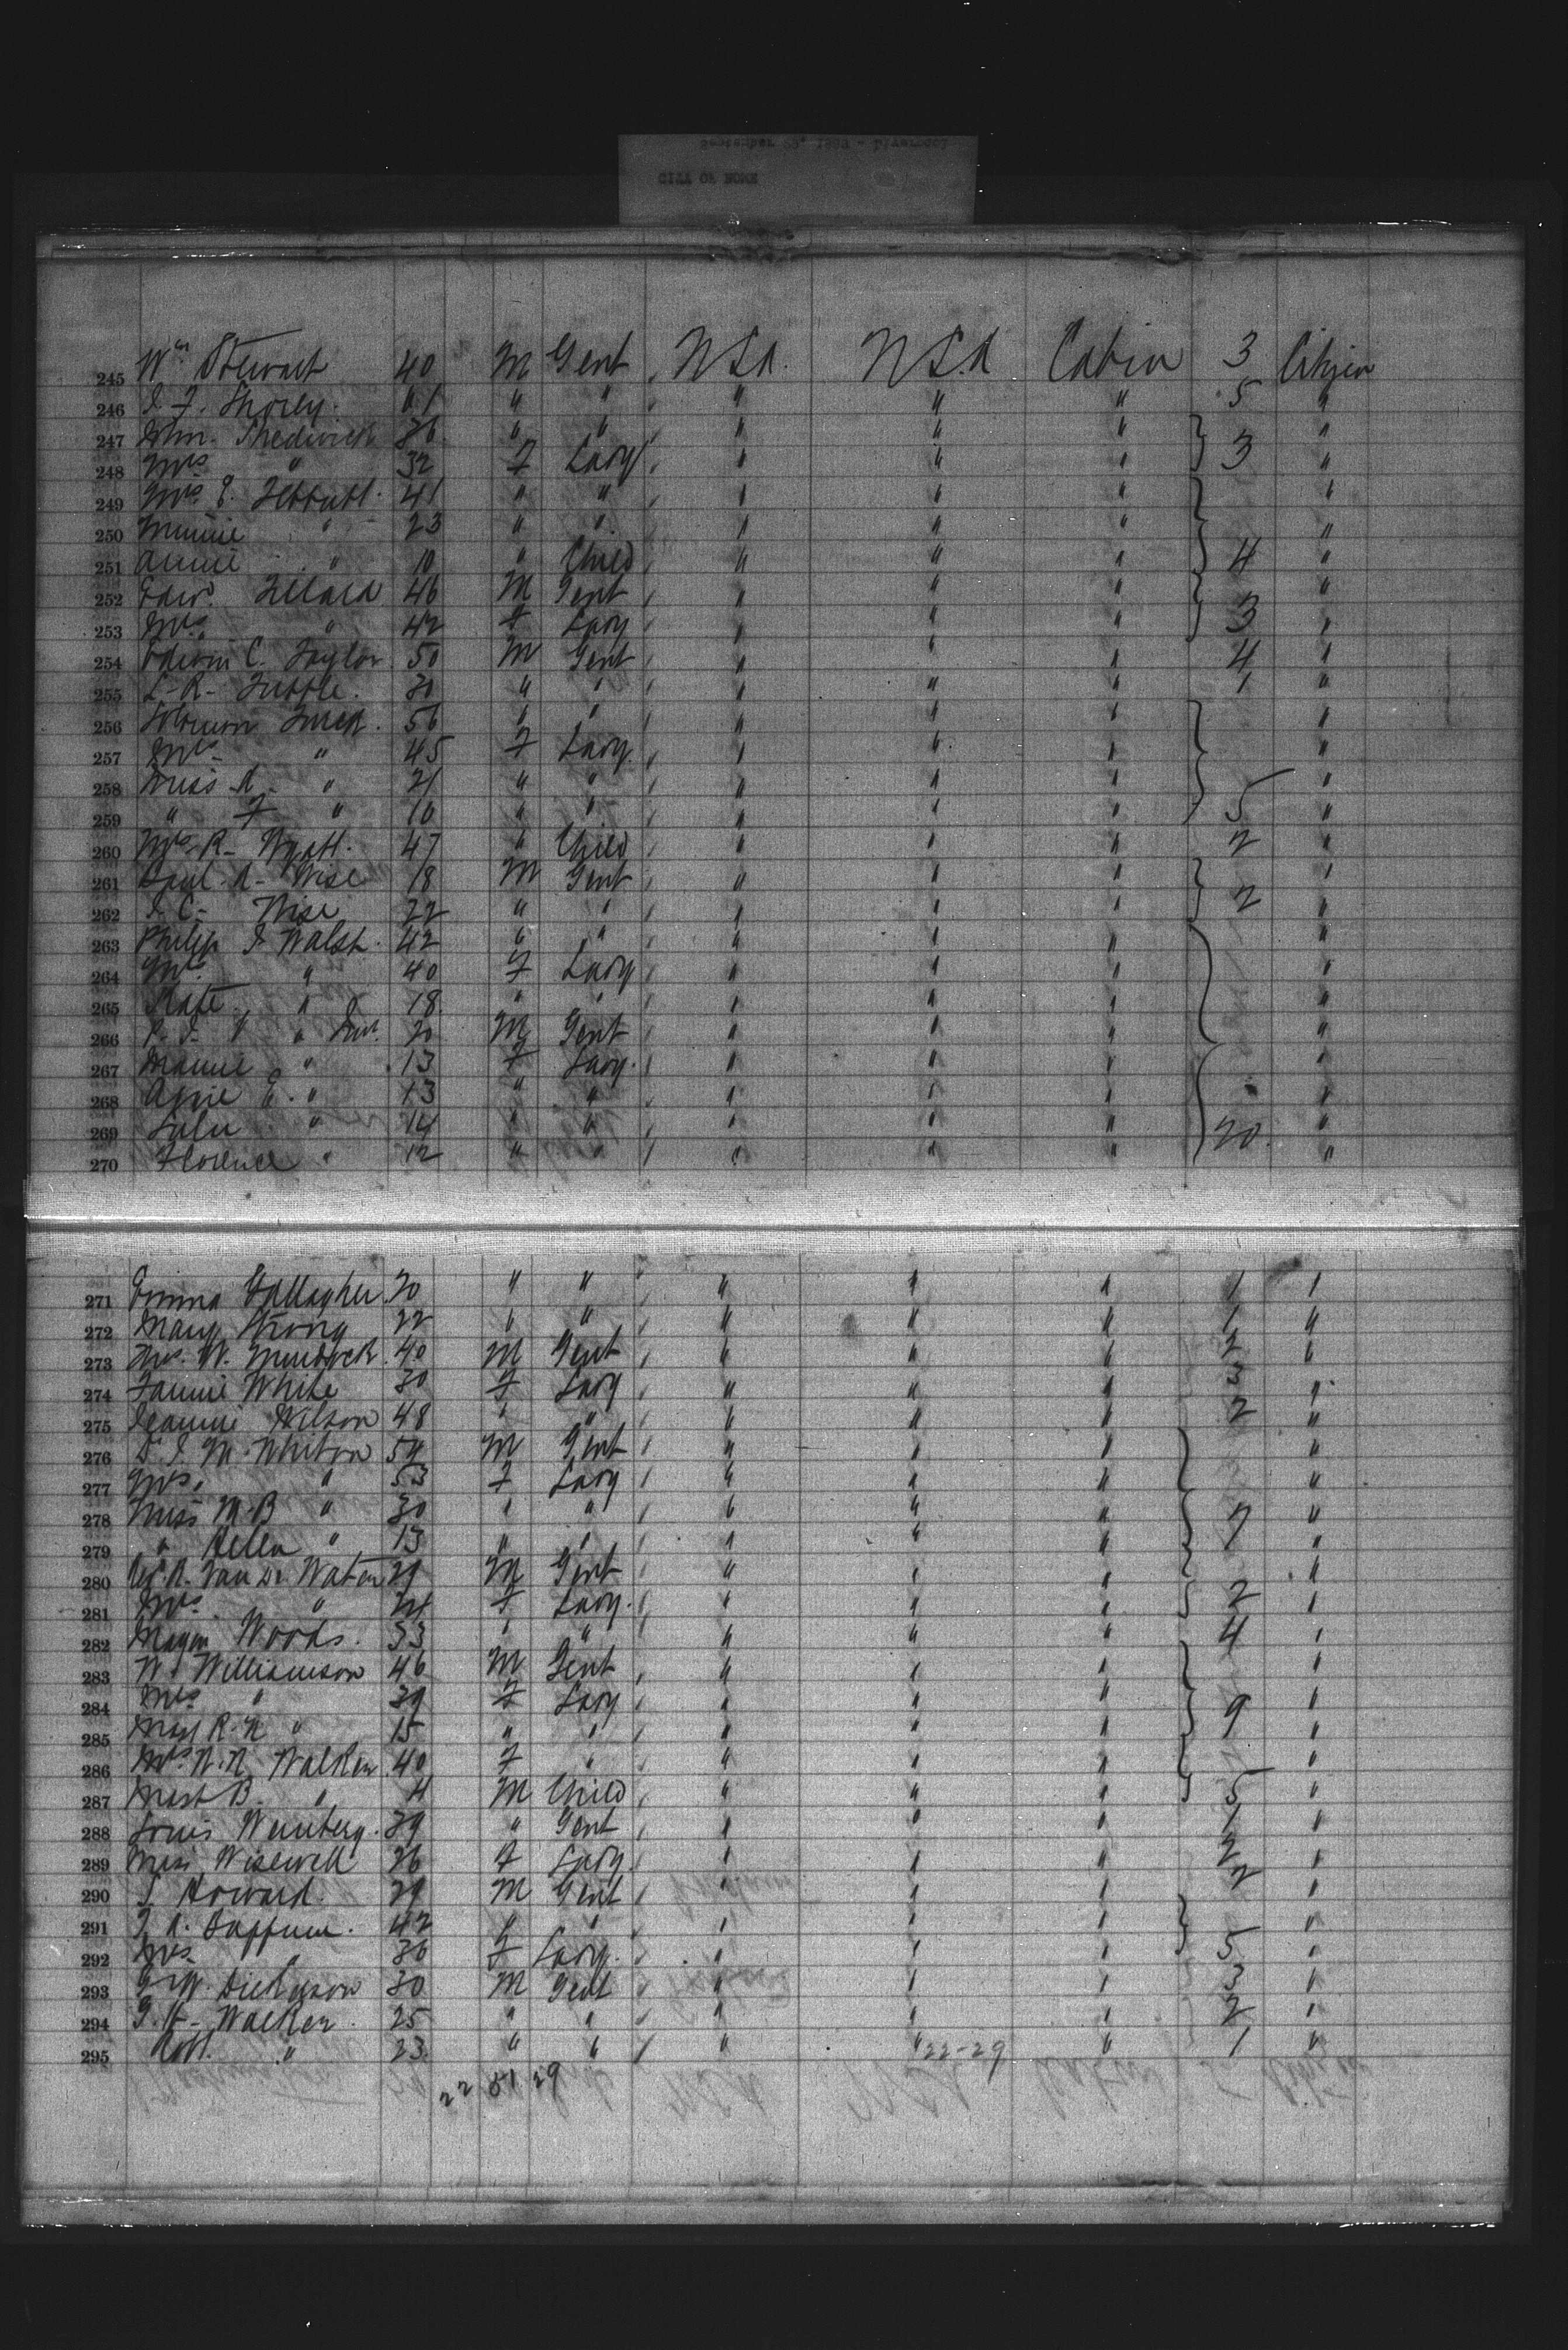 September 23, 1883 - Liverpool
CITY OF ROME
245 Wm Stewart 40 M Gent / USA. USA Cabin 3 Citizen
246 " " / " " " 5 "
247 36 " " / " " " "
248 Mrs " 32 F Lady / " " " 3 "
249 Mrs 41 " " / " " " "
250 Minnie " 23 " " " " " "
251 Annie " 10 " Child " " " 4 "
252 Edw. 46 M Gent / " " " "
253 Mrs " 42 F Lady / " " " 3 "
254 Edwin C. Taylor 50 M Gent / " " " 4 "
255 L. R. Tuttle. 30 " " / " " " 1 "
256 Solomon 56 " " / " " " "
257 Mrs " 45 F Lady / " " " "
258 Miss A. " 21 " " / " " " "
259 " F " 10 " " / " " " 5 "
260 Mrs. R. Wyatt. 47 " Child / " " " 2 "
261 A. Wise 18 M Gent / " " " "
262 C. Wise 22 " " / " " " 2 "
263 Philip J Walsh. 42 " " / " " " "
264 Mrs. " 40 F Lady / " " " "
265 Kate " 18 " " / " " " "
266 P. J. " " Jun. 20 M Gent / " " " "
267 Mamie " 13 F Lady. / " " " "
268 E. " 13 " " / " " " "
269 Lulu " 14 " " / " " " 20. "
270 Florence " 12 " " / " " " "
271 Emma Gallagher 20 " " / " " " 1 "
272 Mary Strong 22 " " / " " " 1 "
273 W. Murdock. 40 M Gent / " " " 2 "
274 Fannie White 30 F Lady / " " " 3 "
275 Jeannie Wilson 48 " " / " " " 2 "
276 D. J. M. Whiton 54 M Gent / " " " "
277 Mrs. " 53 F Lady / " " " "
278 Miss M. B " 30 " " " " " 7 "
279 " Helen " 13 " " / " " " "
280 Van De Water 29 M Gent / " " " "
281 Mrs " 24 F Lady. / " " " 2 "
282 Woods. 33 " " / " " " 4 "
283 W. Williamson 46 M Gent / " " " "
284 Mrs " 39 F Lady / " " " 9 "
285 R. N " 15 " " / " " " "
286 Mrs. N. N. Walker 40 F " / " " " "
287 Mast B. " 4 M Child / " " " 5 "
288 Louis Weinberg. 39 " Gent / " " " 1 "
289 Miss Wisewell 26 F Lady / " " " 2 "
290 S. Howard. 29 M Gent / " " " 2 "
291 42 " " / " " " "
292 Mrs. " 36 F Lady. / " " " 5 "
293 G. W. Dickinson 30 M Gent / " " " 3 "
294 G. H. Walker. 25 " " / " " " 2 "
295 Robt. " 23 " " / " " 22-29 " 1 "
22 51 29